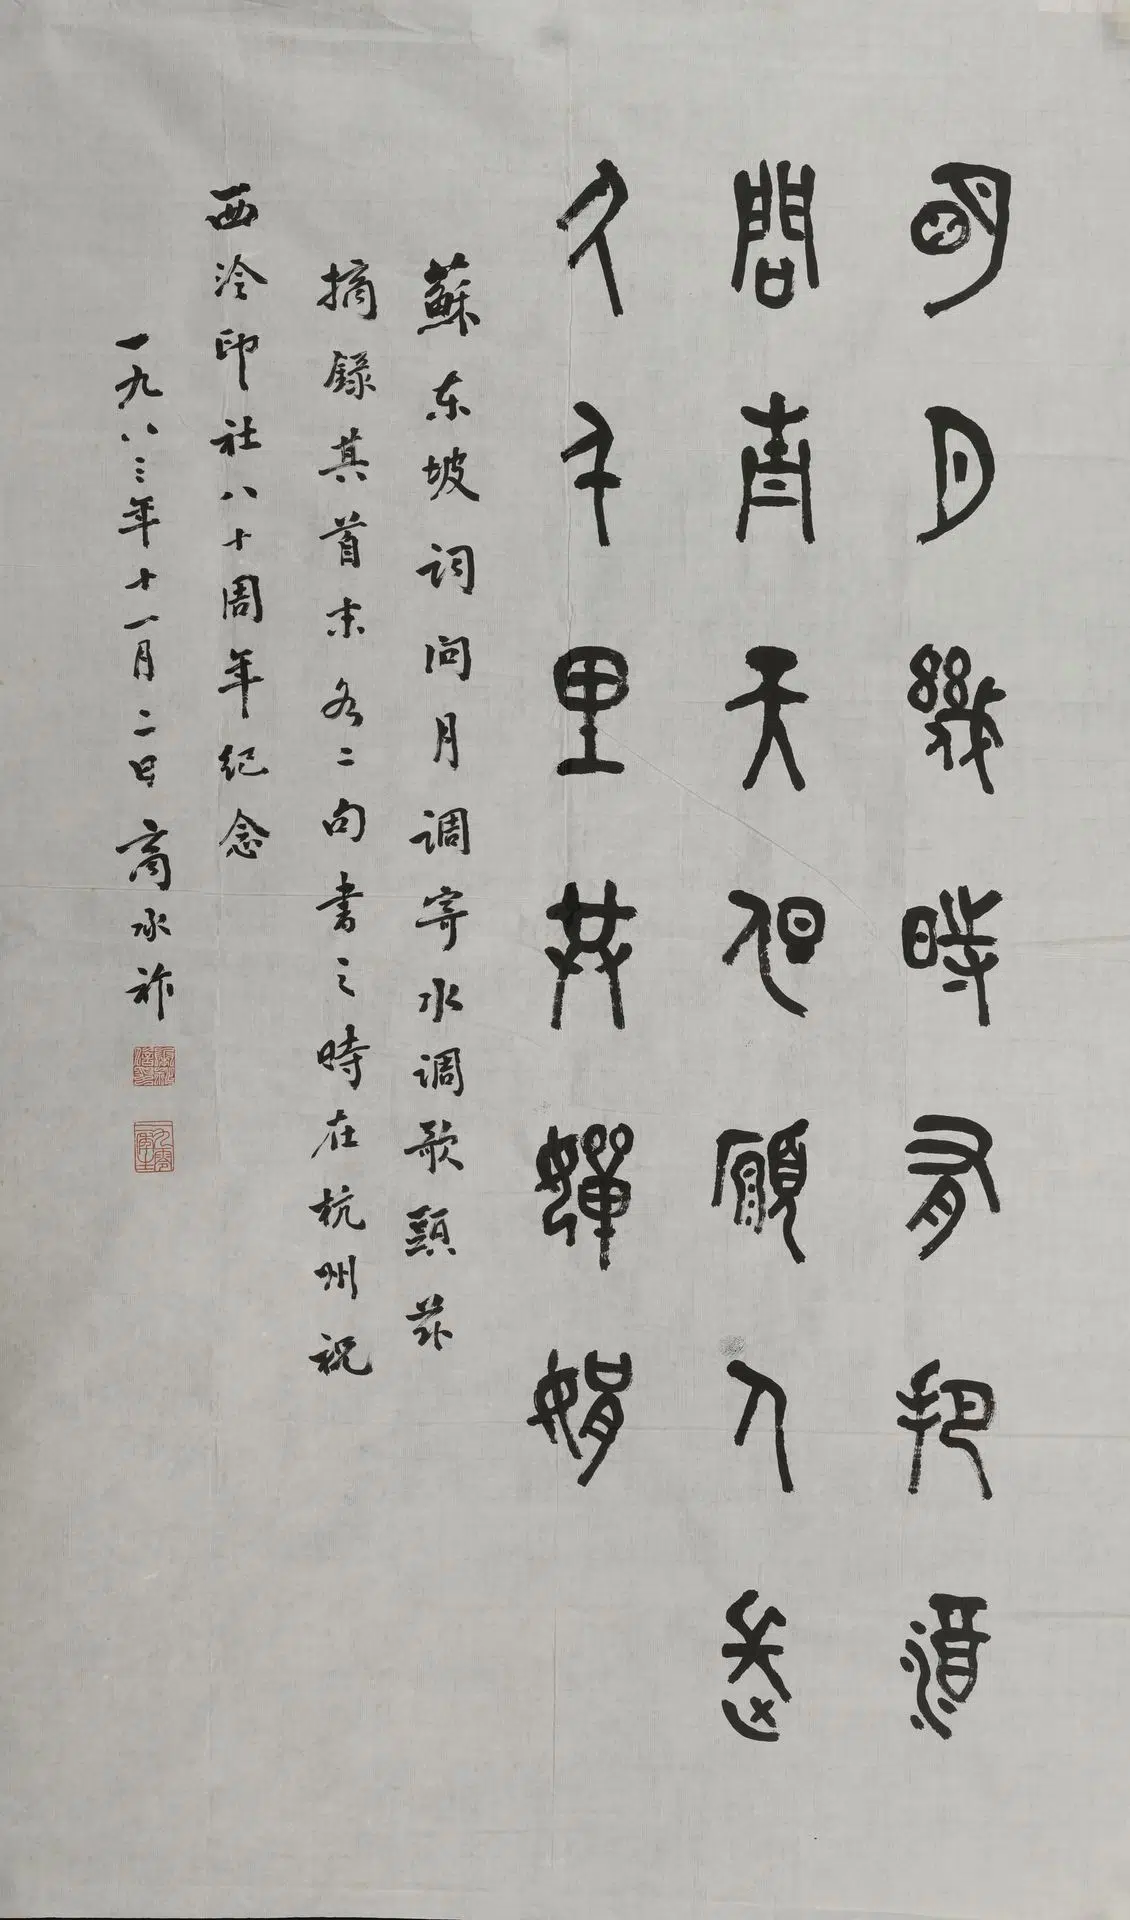 明月幾時有把酒
問青天但願人長
久千里共嬋娟
蘇东坡词问月调寄水调歌頭兹
摘録其首末各二句書之時在杭州祝
西泠印社八十周年纪念
一九八三年十一月二日商承祚